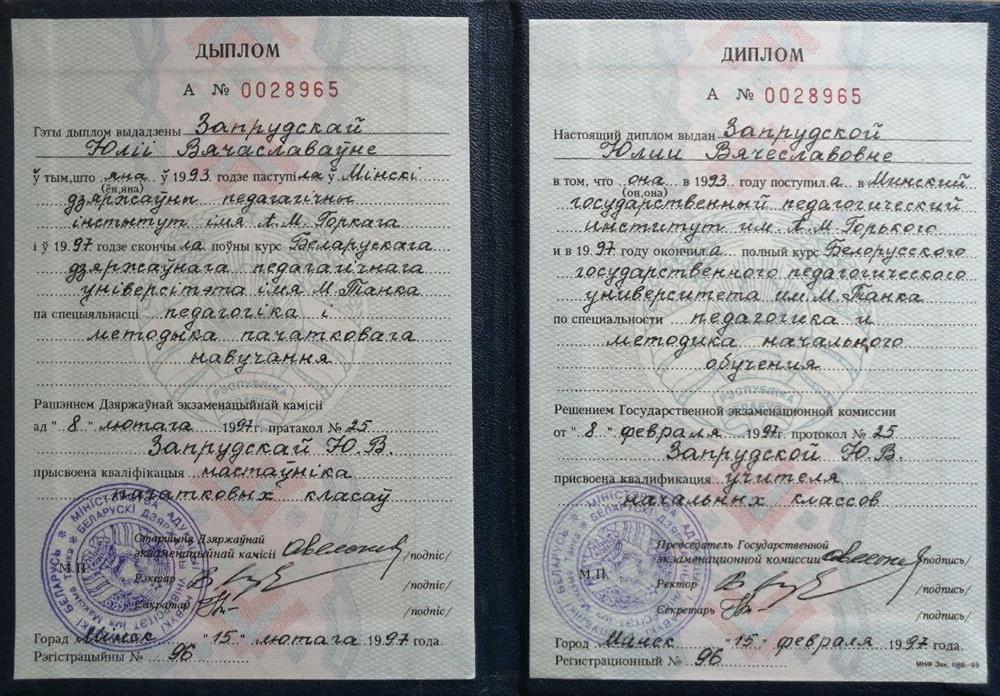 ДЫПЛОМ
А № 0028965
Гэты дыплом выдадзены Запрудскай
Юліі Вячаславаўне
ў тым, што яна ў 1993 годзе паступіла ў Мінскі
(ён, яна)
дзяржаўны педагагічны
інстытут імя А.М. Горкага
і ў 1997 годзе скончыла поўны курс Беларускага
дзяржаўнага педагагічнага
універсітэта імя М. Танка
па спецыяльнасці педагогіка і
методыка пачатковага
навучання
РЭСПУБЛІКА
БЕЛАРУСЬ
Рашэннем Дзяржаўнай экзаменацыйнай камісіі
ад "8" лютага 1997г. пратакол № 25
Запрудскай Ю.В.
прысвоена кваліфікацыя настаўніка
пачатковых класаў
Старшыня Дзяржаўнай
экзаменацыйнай камісіі /подпіс/
М.П.
Рэктар /подпіс/
Сакратар /подпіс/
Горад Мінск "15" лютага 1997 года.
Рэгістрацыйны № 96
ДИПЛОМ
А № 0028965
Настоящий диплом выдан Запрудской
Юлии Вячеславовне
в том, что она в 1993 году поступила в Минский
(он, она)
государственный педагогический
институт им. А.М. Горького
и в 1997 году окончила полный курс Белорусского
государственного педагогического
университета им. М. Танка
по специальности педагогика и
методика начального
обучения
РЭСПУБЛІКА
БЕЛАРУСЬ
Решением Государственной экзаменационной комиссии
от "8" февраля 1997г. протокол № 25
Запрудской Ю.В.
присвоена квалификация учителя
начальных классов
Председатель Государственной
экзаменационной комиссии /подпись/
М.П.
Ректор /подпись/
Секретарь /подпись/
Город Минск "15" февраля 1997 года.
Регистрационный № 96
МНФ Зак. 1188—95